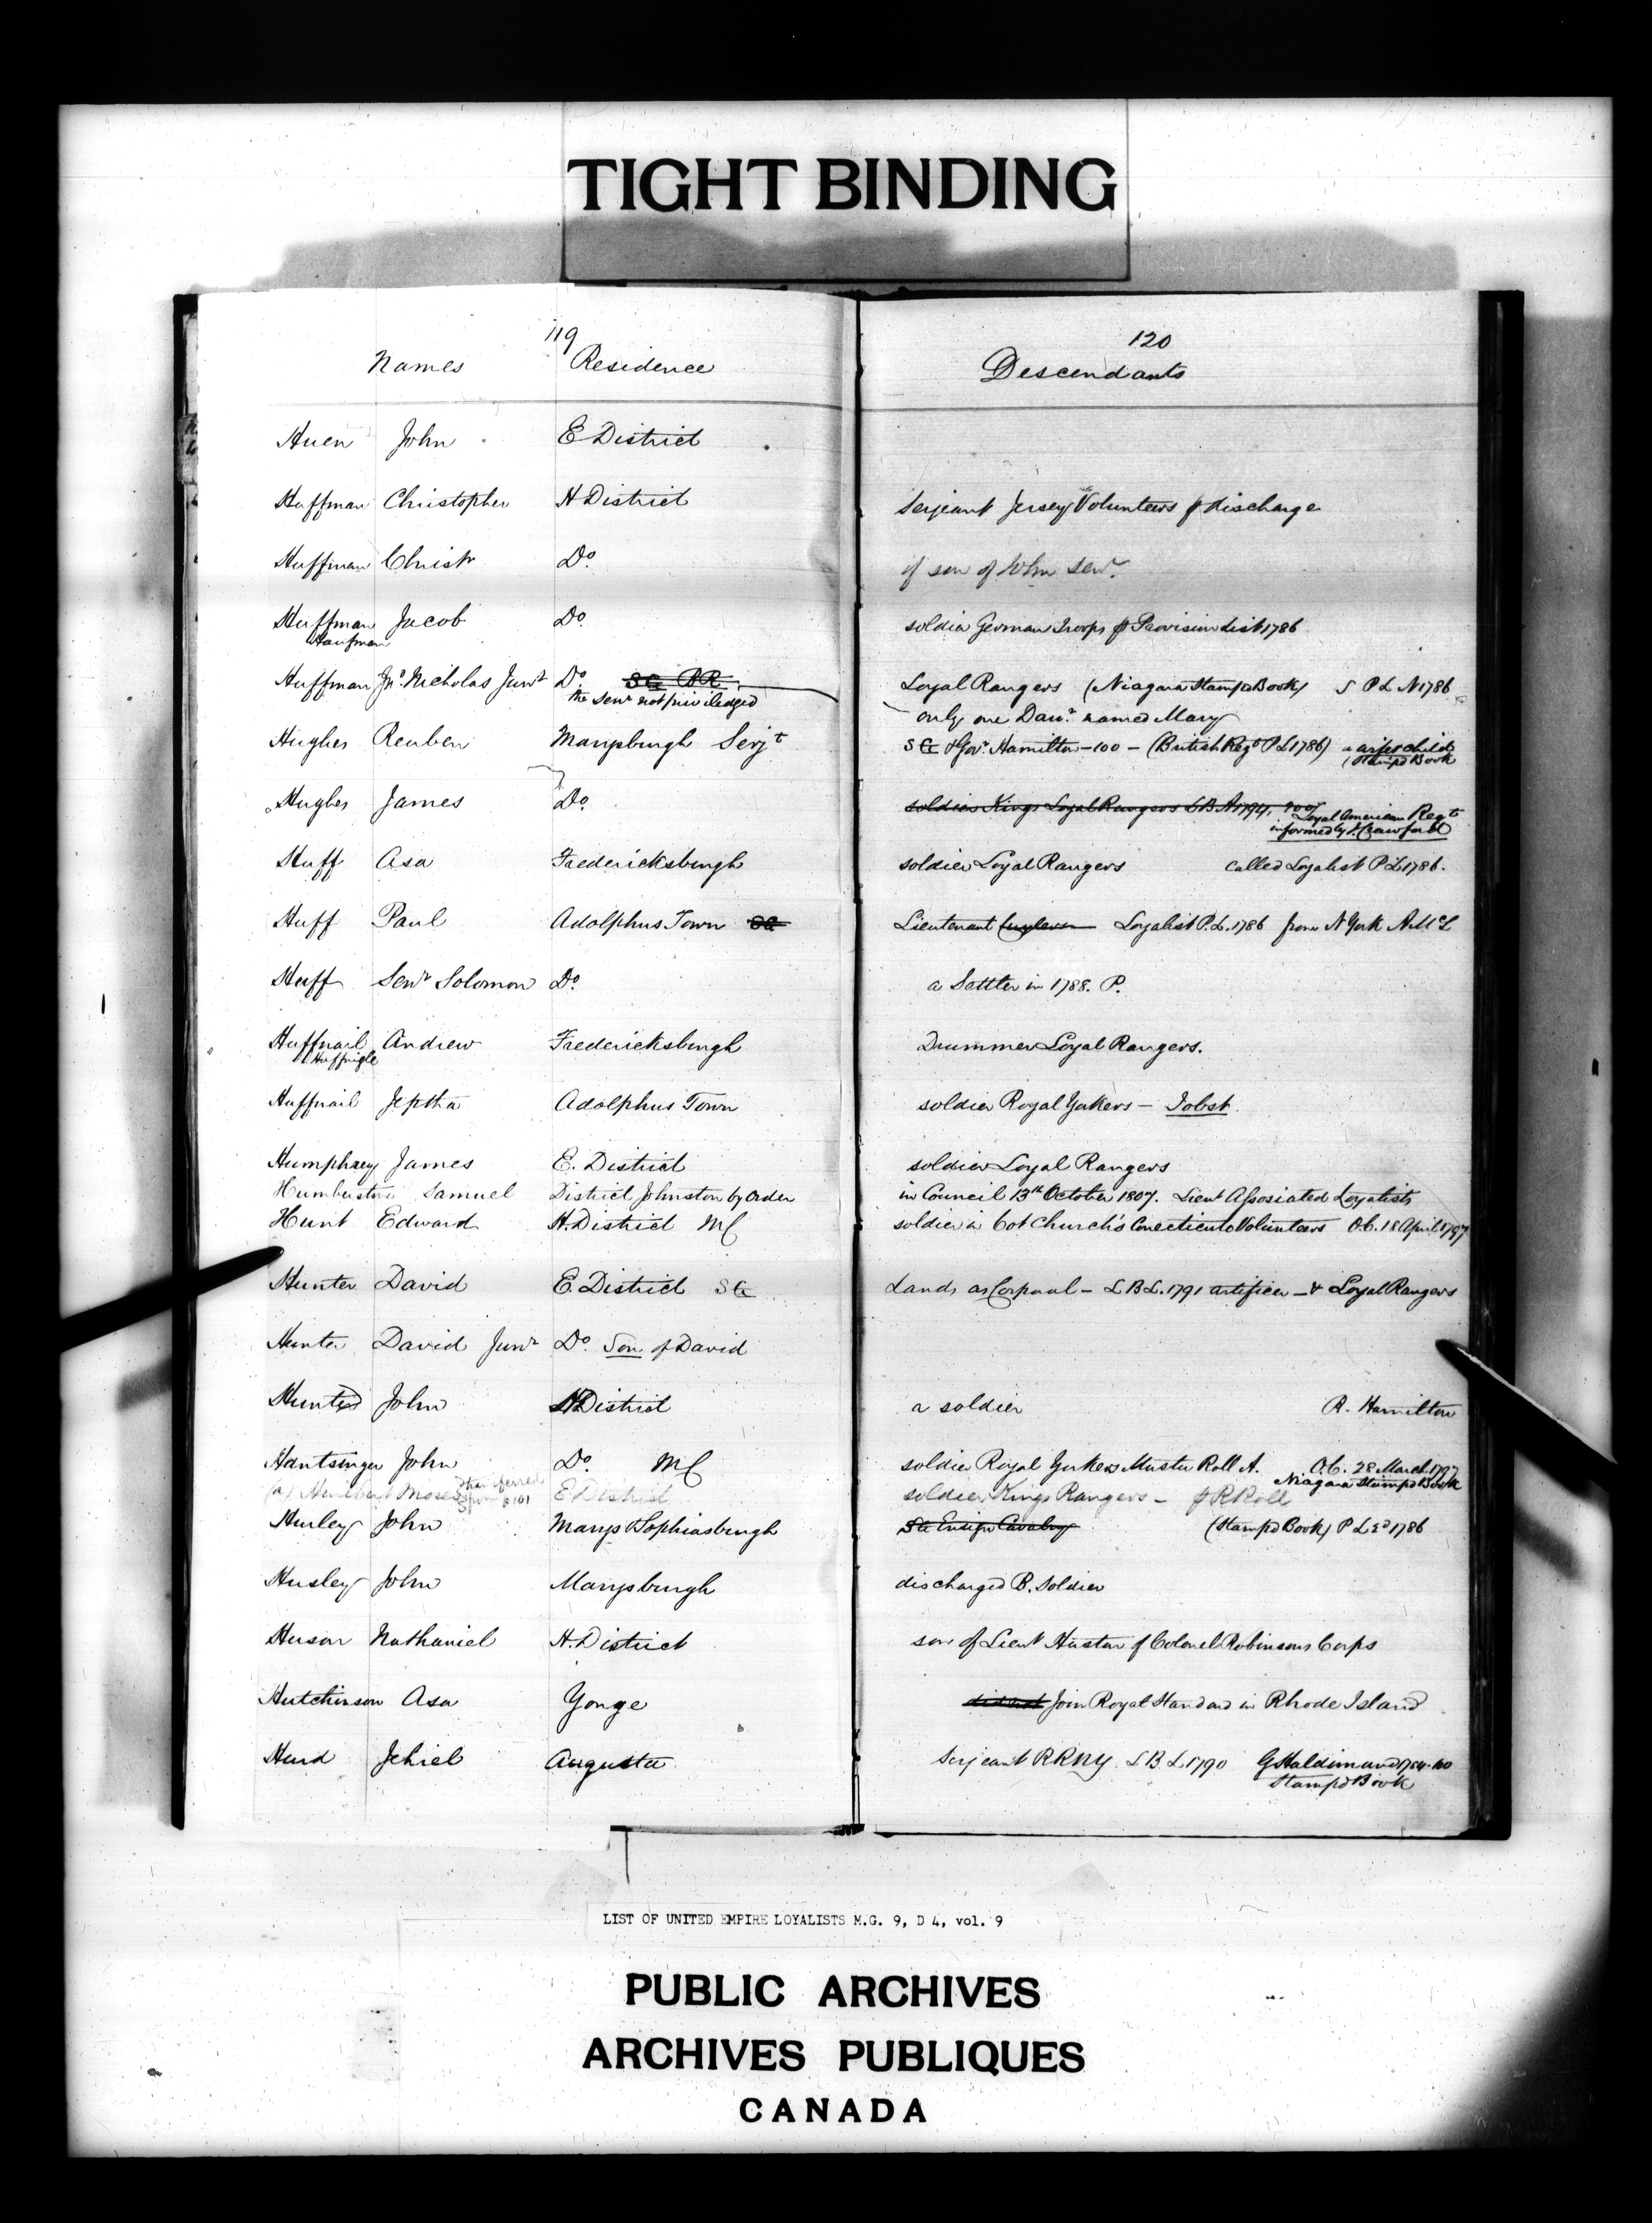 TIGHT BINDING
119
120
Names Residence Descendants
Huen John E District
Huffman Christopher H District Serjeant Jersey Volunteers p discharge
Huffman Christr Do. if son of John Senr.
Huffman Jacob Do. soldier German Troops p Provision List 1786
Haufman
Huffman Jno. Nicholas Junr Do. Loyal Rangers (Niagara Stamped Book) S P L N 1786
the Senr not priviledged only one Daur. named Mary
Hughes Reuben Marysburgh Serjt S G Govr. Hamilton - 100 - (British Regt P L 1786) a wife & child
(Stamped Book
Hughes James Do. soldier Kings Loyal Rangers L B A 1794, 200
Loyal American Regt
informed by J. Crawford
Huff Asa Fredericksburgh soldier Loyal Rangers called Loyalist P L 1786.
Huff Paul Adolphus Town SG Lieutenant Loyalist P. L. 1786 from N York A. McL
Huff Senr Solomon Do. a Settler in 1788. P.
Huffnail Andrew Fredericksburgh Drummer Loyal Rangers.
Huffnigle
Huffnail Jeptha Adolphus Town soldier Royal Yorkers - Jobst.
Humphrey James E. District soldier Loyal Rangers
Humberstone Samuel District Johnston by Order in Council 13th October 1807. Lieut Associated Loyalists
Hunt Edward H. District MC soldier in Col Church's Conecticute Volunteers O.C. 18 April 1797
Hunter David E. District S G Lands as Corporal - L B L. 1791 artificer - & Loyal Rangers
Hunter David Junr Do. Son of David
Hunter John H District a soldier R. Hamilton
Hantsinger John Do. MC soldier Royal Yorkers Muster Roll A. O.C. 28 March 1797
Niagara Stamped Book
(a) Moses transferred from p 101 E District soldier Kings Rangers - p R Roll
Hurley John Marys & Sophiasburgh SG Ensign Cavalry (Stampd Book) P L 2d 1786
Husley John Marysburgh discharged B. Soldier
Huson Nathaniel H. District son of Lieut Huston of Colonel Robinsons Corps
Hutchinson Asa Yonge did not Join Royal Standard in Rhode Island
Hurd Jehiel Augusta Serjeant RRNY L B L 1790 G Haldimand 1784. 100
Stampd Book
LIST OF UNITED EMPIRE LOYALISTS M.G. 9, D 4, vol. 9
PUBLIC ARCHIVES
ARCHIVES PUBLIQUES
CANADA